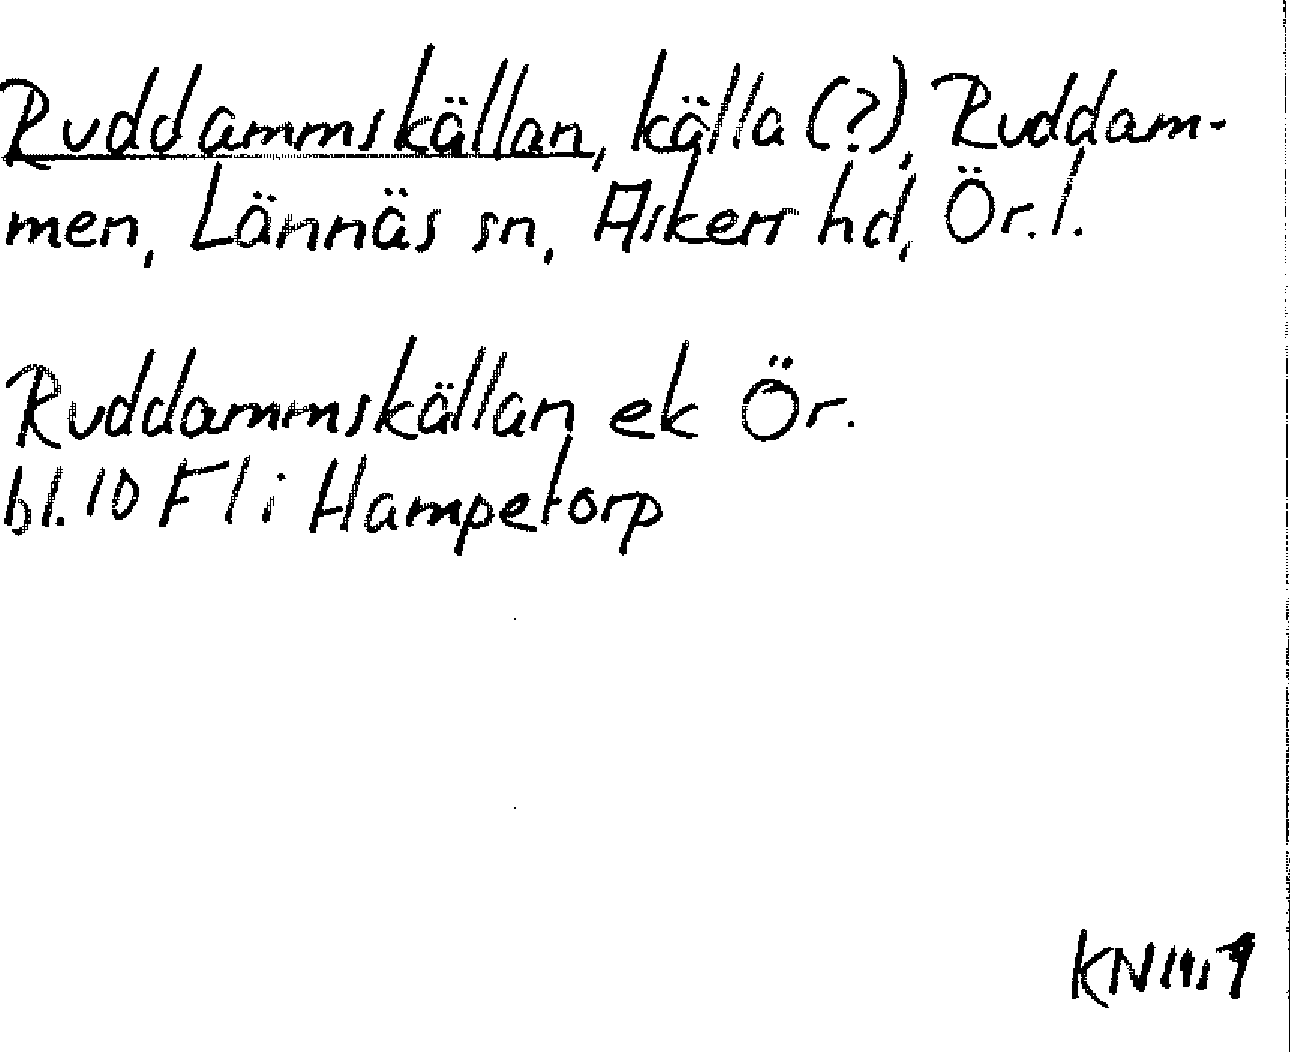 Ruddammskällan, källa (?), Ruddam-
men, Lännäs sn, Askers hd, Ör. l.
Ruddammskällan ek Ör.
bl. 10 F 1 i Hampetorp